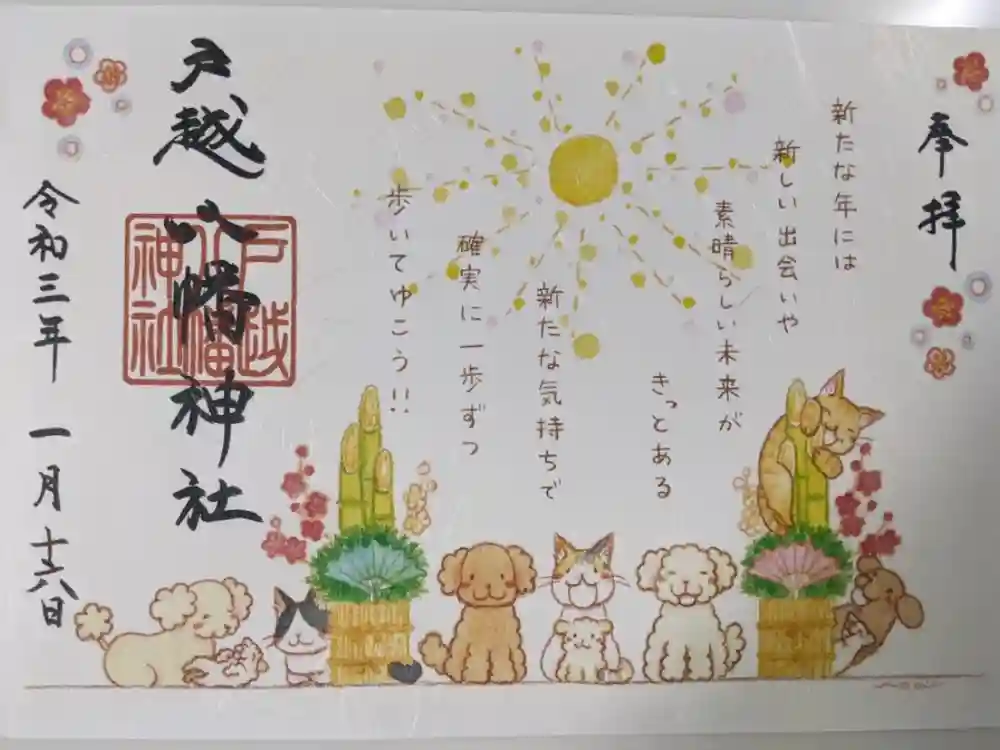 奉拝
新たな年には
新しい出会いや
素晴らしい未来が
きっとある
新たな気持ちで
確実に一歩ずつ
歩いてゆこう!!
戸越八幡神社
戸越
八幡
神社
令和三年 一月十六日